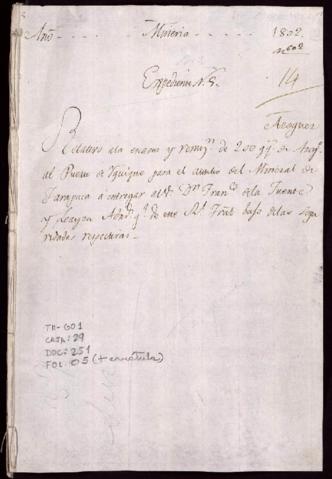 Año - - - - Mineria - - - - 1802.
nº 602
Expediente N. 5.
14
Azogues
Relativo a la encaxe y remisⁿ. de 200 qq. de Azogˢ.
al Puerto de Yquique para el auxilio del Mineral de
Tarapaca á entregar al Dⁿ. Franᶜᵒ. de la Fuente
y Loayza Admᵒʳ. de este Rˡ. Tribˡ. bajo de las segu
ridades respectivas.
TM-GO1
CAJA: 29
DOC: 251
FOL: 05 (+ carátula)